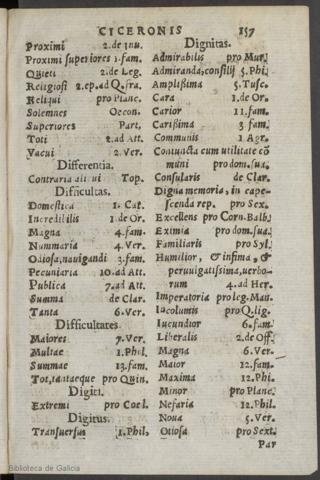 CICERONIS 157
Proximi 2. de Inu.
Proximi superiores 1. fam.
Quieti 2. de Leg.
Religiosi 2. ep. ad Q. fra.
Reliqui pro Planc.
Solemnes Oecon.
Superiores Part.
Toti 2. ad Att.
Vacui 2. Ver.
Differentia.
Contraria Top.
Difficultas.
Domestica 1. Cat.
Incredibilis 1. de Or.
Magna 4. fam.
Nummaria 4. Ver.
Odiosa, nauigandi 3. fam.
Pecuniaria 10. ad Att.
Publica 7. ad Att.
Summa de Clar.
Tanta 6. Ver.
Difficultates.
Maiores 7. Ver.
Multae 1. Phil.
Summae 13. fam.
Tot, tantaeque pro Quin.
Digiti.
Extremi pro Coel.
Digitus.
Transuersus 1. Phil,
Dignitas.
Admirabilis pro Mur.
Admiranda, consilij 5. Phi.
Amplißima 5. Tusc.
Cara 1. de Or.
Carior 11. fam.
Carißima 3. fam.
Communis 1. Agr.
Coniuncta cum utilitate cō
muni pro dom. sua.
Consularis de Clar.
Digna memoria, in cape-
scenda rep. pro Sex.
Excellens pro Corn. Balb.
Eximia pro dom. sua.
Familiaris pro Syl.
Humilior, & infima, &
peruulgatissima, uerbo-
rum 4. ad Her.
Imperatoria pro leg. Man.
Incolumis pro Q. lig.
Iucundior 6. fam.
Liberalis 2. de Off.
Magna 6. Ver.
Maior 12. fam.
Maxima 12. Phi.
Minor pro Planc.
Nefaria 12. Phil.
Noua 5. Ver.
Otiosa pro Sext.
Par
Biblioteca de Galicia